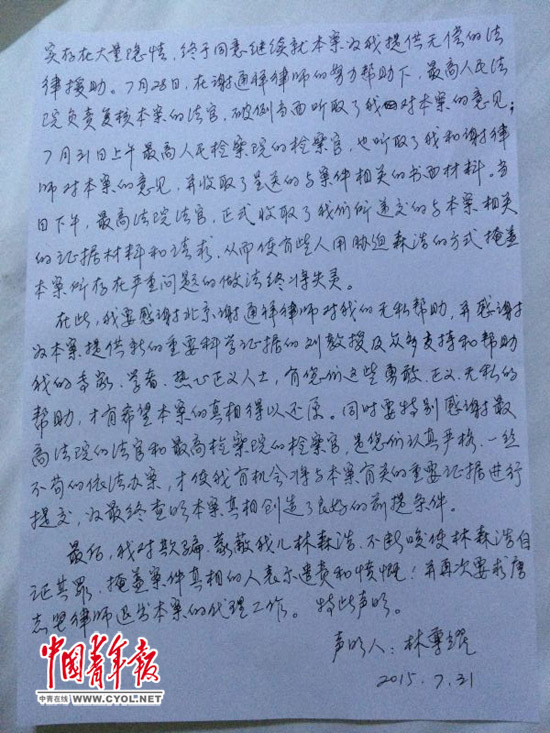 实存在大量隐情，终于同意继续就本案为我提供无偿的法
律援助。7月28日，在谢通祥律师的努力帮助下，最高人民法
院负责复核本案的法官，破例当面听取了我对本案的意见；
7月31日上午最高人民检察院的检察官，也听取了我和谢律
师对本案的意见，并收取了呈送的与案件相关的书面材料。当
日下午，最高法院法官，正式收取了我们所递交的与本案相关
的证据材料和请求，从而使有些人用胁迫森浩的方式掩盖
本案所存在严重问题的做法终将失灵。
在此，我要感谢北京谢通祥律师对我的无私帮助，并感谢
为本案提供新的重要科学证据的刘教授及众多支持和帮助
我的专家、学者、热心正义人士，有您们这些勇敢、正义、无私的
帮助，才有希望本案的真相得以还原。同时要特别感谢最
高法院的法官和最高检察院的检察官，是您们认真严格、一丝
不苟的依法办案，才使我有机会将与本案有关的重要证据进行
提交，为最终查明本案真相创造了良好的前提条件。
最后，我对欺骗、蒙蔽我儿林森浩，不断唆使林森浩自
证其罪、掩盖案件真相的人表示谴责和愤慨！并再次要求唐
志坚律师退出本案的代理工作。特此声明。
声明人：林尊耀
2015.7.31
中国青年报
中青在线 WWW.CYOL.NET